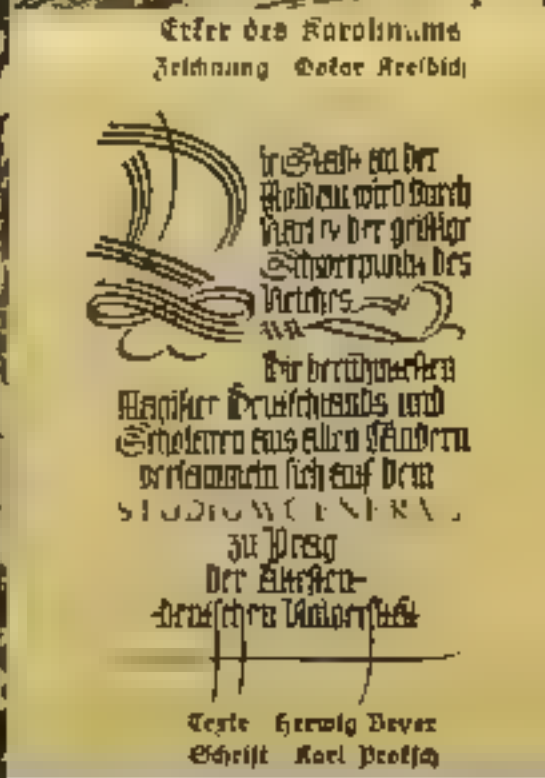 Erker des Karolinums
Zeichnung Oskar Kreibich
Die Stadt an der
Moldau wird durch
Karl IV der geistige
Schwerpunkt des
Reiches
Die berühmtesten
Magister Deutschlands und
Scholaren aus allen Ländern
versammeln sich auf dem
STUDIUM GENERALE
zu Prag
der ältesten
deutschen Universität
Texte Herwig Beyer
Schrift Karl Proksch